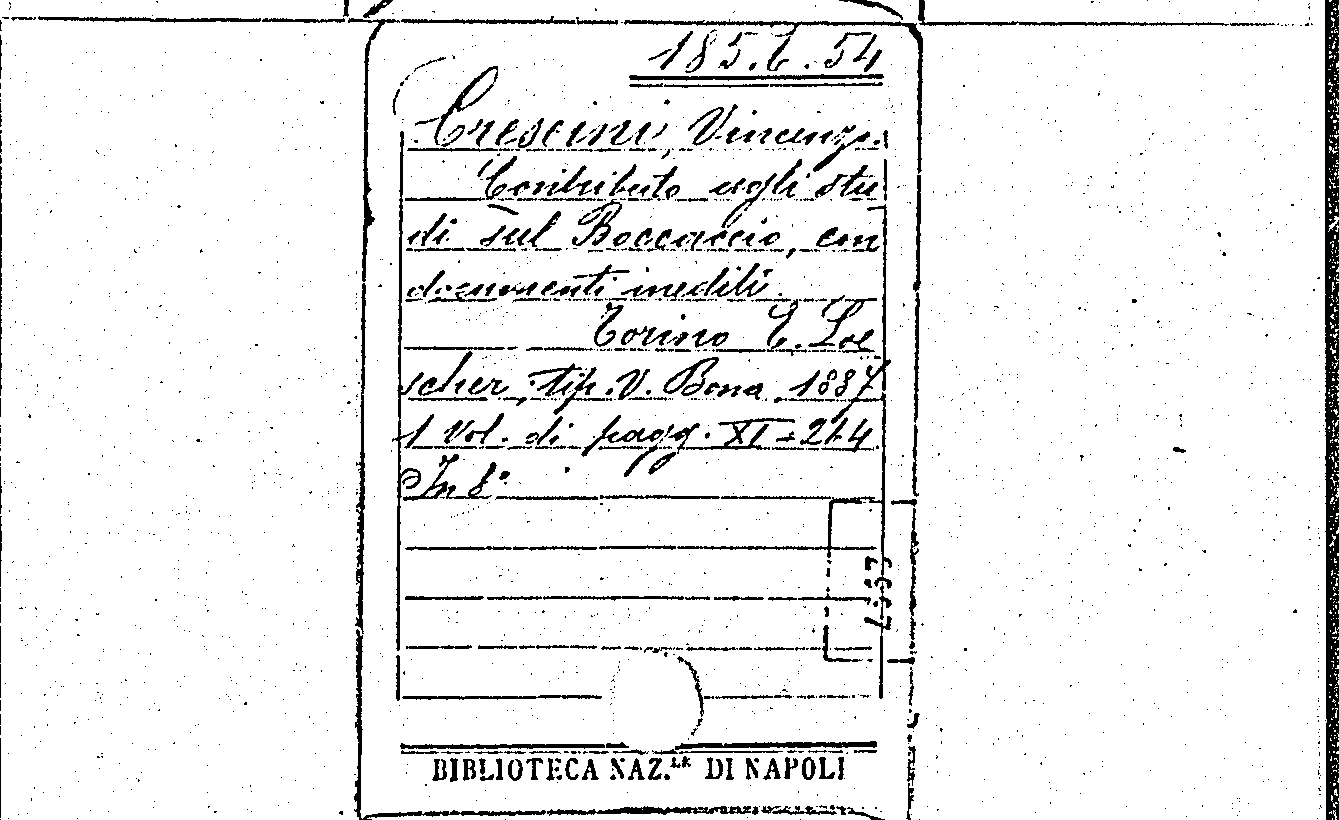 185.C.54
Crescini, Vincenzo.
Contributo agli stu
di sul Boccaccio, con
documenti inediti.
Torino E. Loe
scher, tip. V. Bona, 1887
1 Vol. di pagg. XI-264
In 8°
BIBLIOTECA NAZ.LE DI NAPOLI